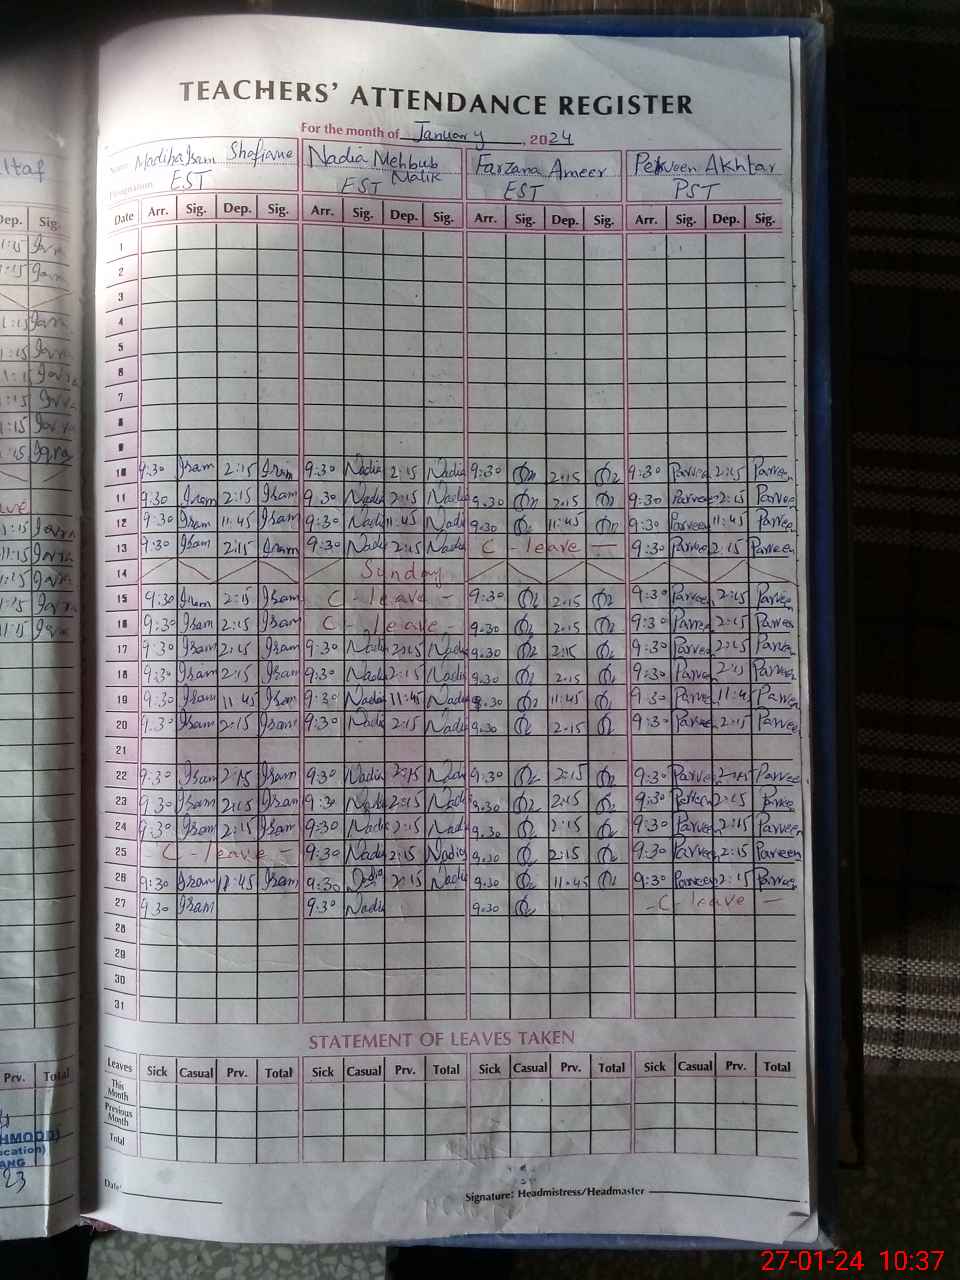 TEACHERS' ATTENDANCE REGISTER
For the month of January, 2024
Name: Madiha Iram Shafique Nadia Mehbub Malik Farzana Ameer Perveen Akhtar
Designation: EST EST EST PST
Date Arr. Sig. Dep. Sig. Arr. Sig. Dep. Sig. Arr. Sig. Dep. Sig. Arr. Sig. Dep. Sig.
1
2
3
4
5
6
7
8
9
10 9:30 Iram 2:15 Iram 9:30 Nadia 2:15 Nadia 9:30 2:15 9:30 Parveen 2:15 Parveen
11 9:30 Iram 2:15 Iram 9:30 Nadia 2:15 Nadia 9.30 2.15 9:30 Parveen 2:15 Parveen
12 9:30 Iram 11:45 Iram 9:30 Nadia 11:45 Nadia 9.30 11:45 9:30 Parveen 11:45 Parveen
13 9:30 Iram 2:15 Iram 9:30 Nadia 2:15 Nadia C - leave - 9:30 Parveen 2:15 Parveen
14 Sunday
15 9:30 Iram 2:15 Iram C - leave - 9:30 2.15 9:30 Parveen 2:15 Parveen
16 9:30 Iram 2:15 Iram C - leave - 9.30 2.15 9:30 Parveen 2:15 Parveen
17 9:30 Iram 2:15 Iram 9:30 Nadia 2:15 Nadia 9.30 2:15 9:30 Parveen 2:15 Parveen
18 9:30 Iram 2:15 Iram 9:30 Nadia 2:15 Nadia 9.30 2.15 9:30 Parveen 2:15 Parveen
19 9:30 Iram 11:45 Iram 9:30 Nadia 11:45 Nadia 9.30 11:45 9:30 Parveen 11:45 Parveen
20 9:30 Iram 2:15 Iram 9:30 Nadia 2:15 Nadia 9.30 2.15 9:30 Parveen 2:15 Parveen
21
22 9:30 Iram 2:15 Iram 9:30 Nadia 2:15 Nadia 9:30 2:15 9:30 Parveen 2:15 Parveen
23 9:30 Iram 2:15 Iram 9:30 Nadia 2:15 Nadia 9.30 2:15 9:30 2:15 Parveen
24 9:30 Iram 2:15 Iram 9:30 Nadia 2:15 Nadia 9.30 2:15 9:30 Parveen 2:15 Parveen
25 - C - leave - 9:30 Nadia 2:15 Nadia 9.30 2:15 9:30 Parveen 2:15 Parveen
26 9:30 Iram 11:45 Iram 9:30 Nadia 2:15 Nadia 9.30 11.45 9:30 Parveen 2:15 Parveen
27 9:30 Iram 9:30 Nadia 9:30 - C - leave -
28
29
30
31
STATEMENT OF LEAVES TAKEN
Leaves Sick Casual Prv. Total Sick Casual Prv. Total Sick Casual Prv. Total Sick Casual Prv. Total
This Month
Previous Month
Total
Date:
Signature: Headmistress/Headmaster
27-01-24 10:37